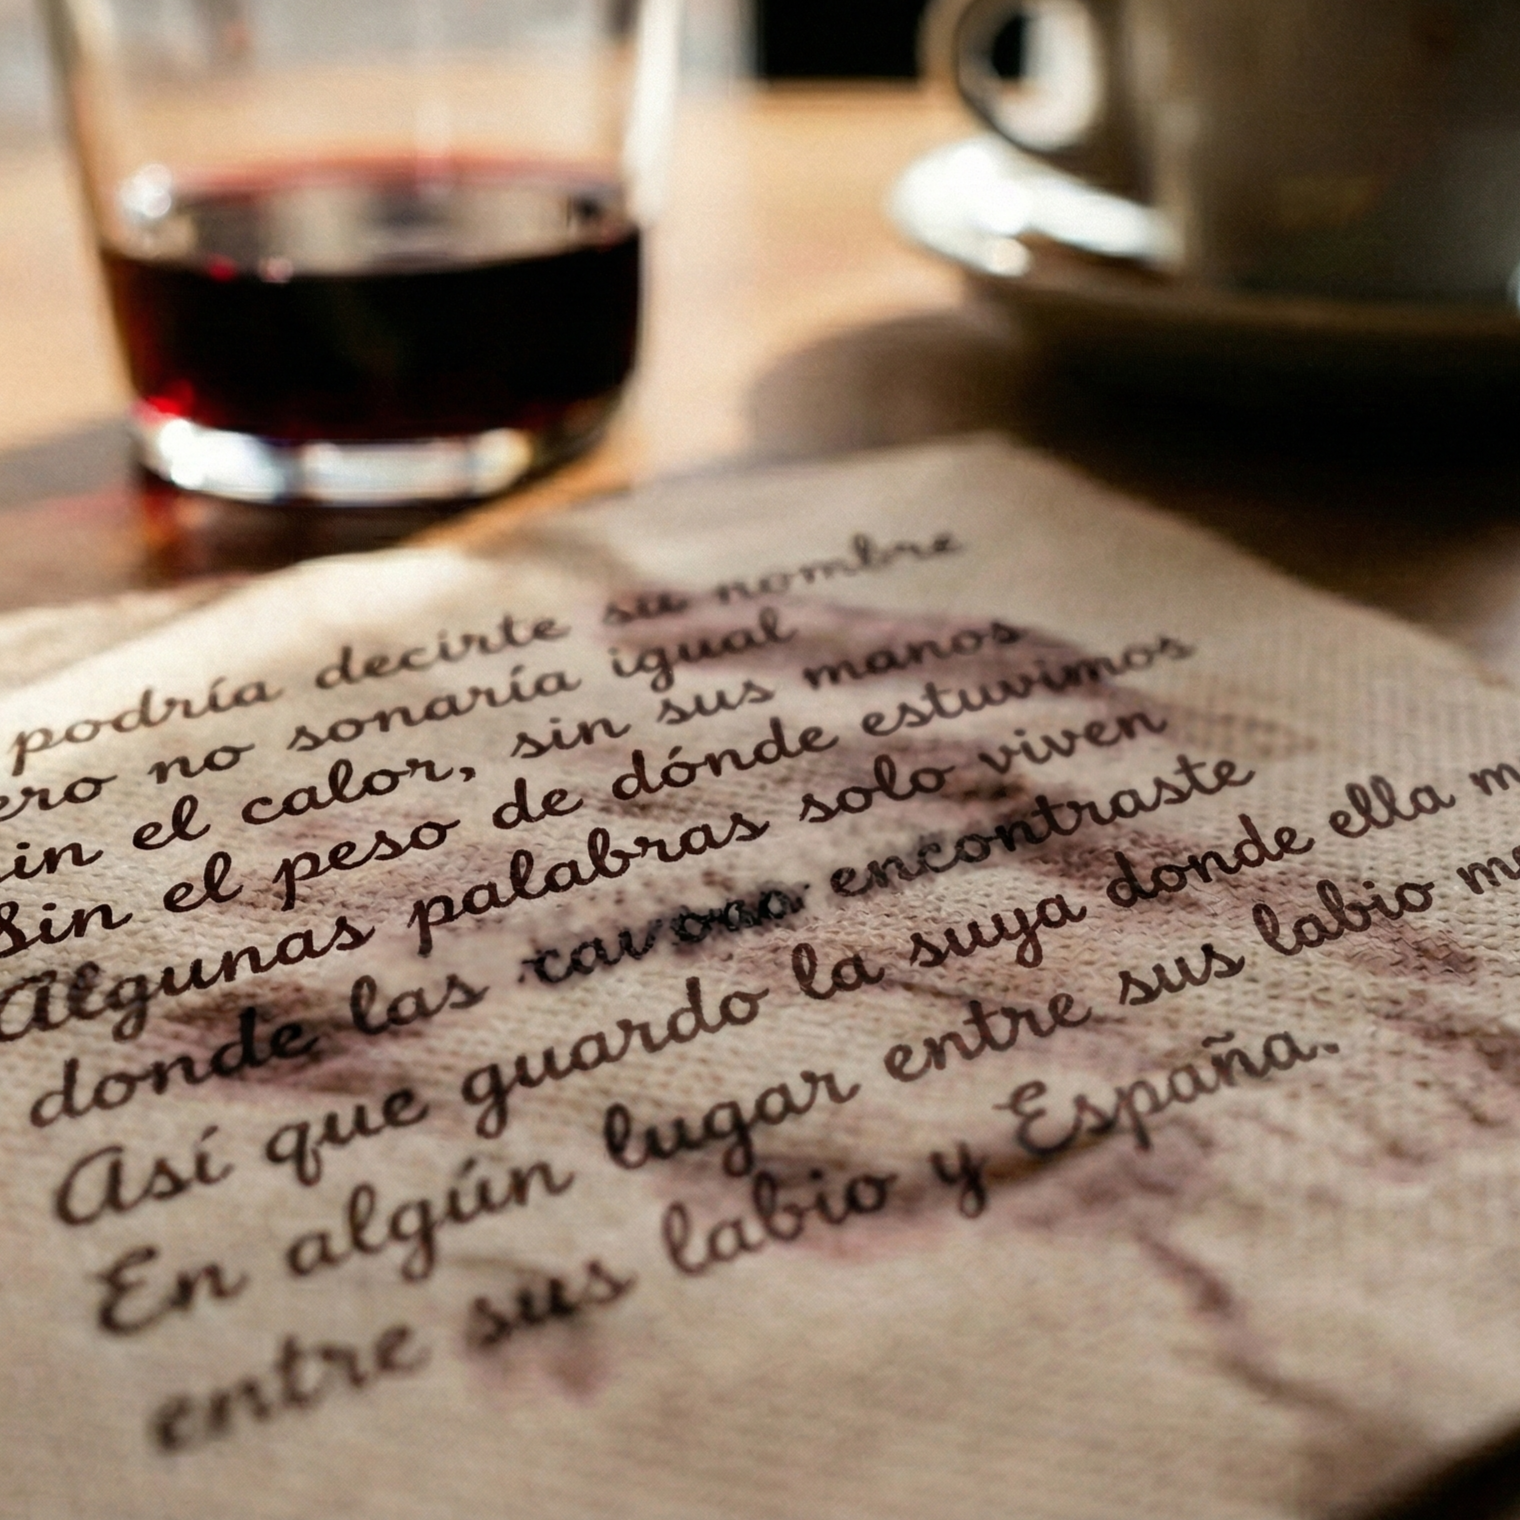 podría decirte su nombre
ero no sonaría igual
in el calor, sin sus manos
Sin el peso de dónde estuvimos
Algunas palabras solo viven
donde las encontraste
Así que guardo la suya donde ella m
En algún lugar entre sus labio me
entre sus labio y España.